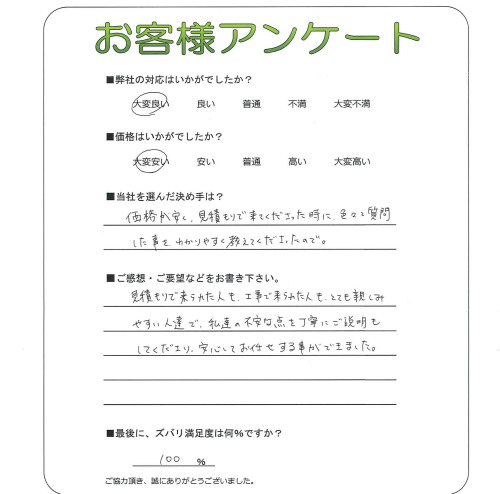 お客様アンケート
■弊社の対応はいかがでしたか？
大変良い 良い 普通 不満 大変不満
■価格はいかがでしたか？
大変安い 安い 普通 高い 大変高い
■当社を選んだ決め手は？
価格が安く、見積もりで来てくださった時に、色々と質問
した事をわかりやすく教えてくださったので。
■ご感想・ご要望などをお書き下さい。
見積もりで来られた人も、工事で来られた人も、とても親しみ
やすい人達で、私達の不安な点を丁寧にご説明も
してくださり、安心してお任せする事ができました。
■最後に、ズバリ満足度は何%ですか？
100 %
ご協力頂き、誠にありがとうございました。